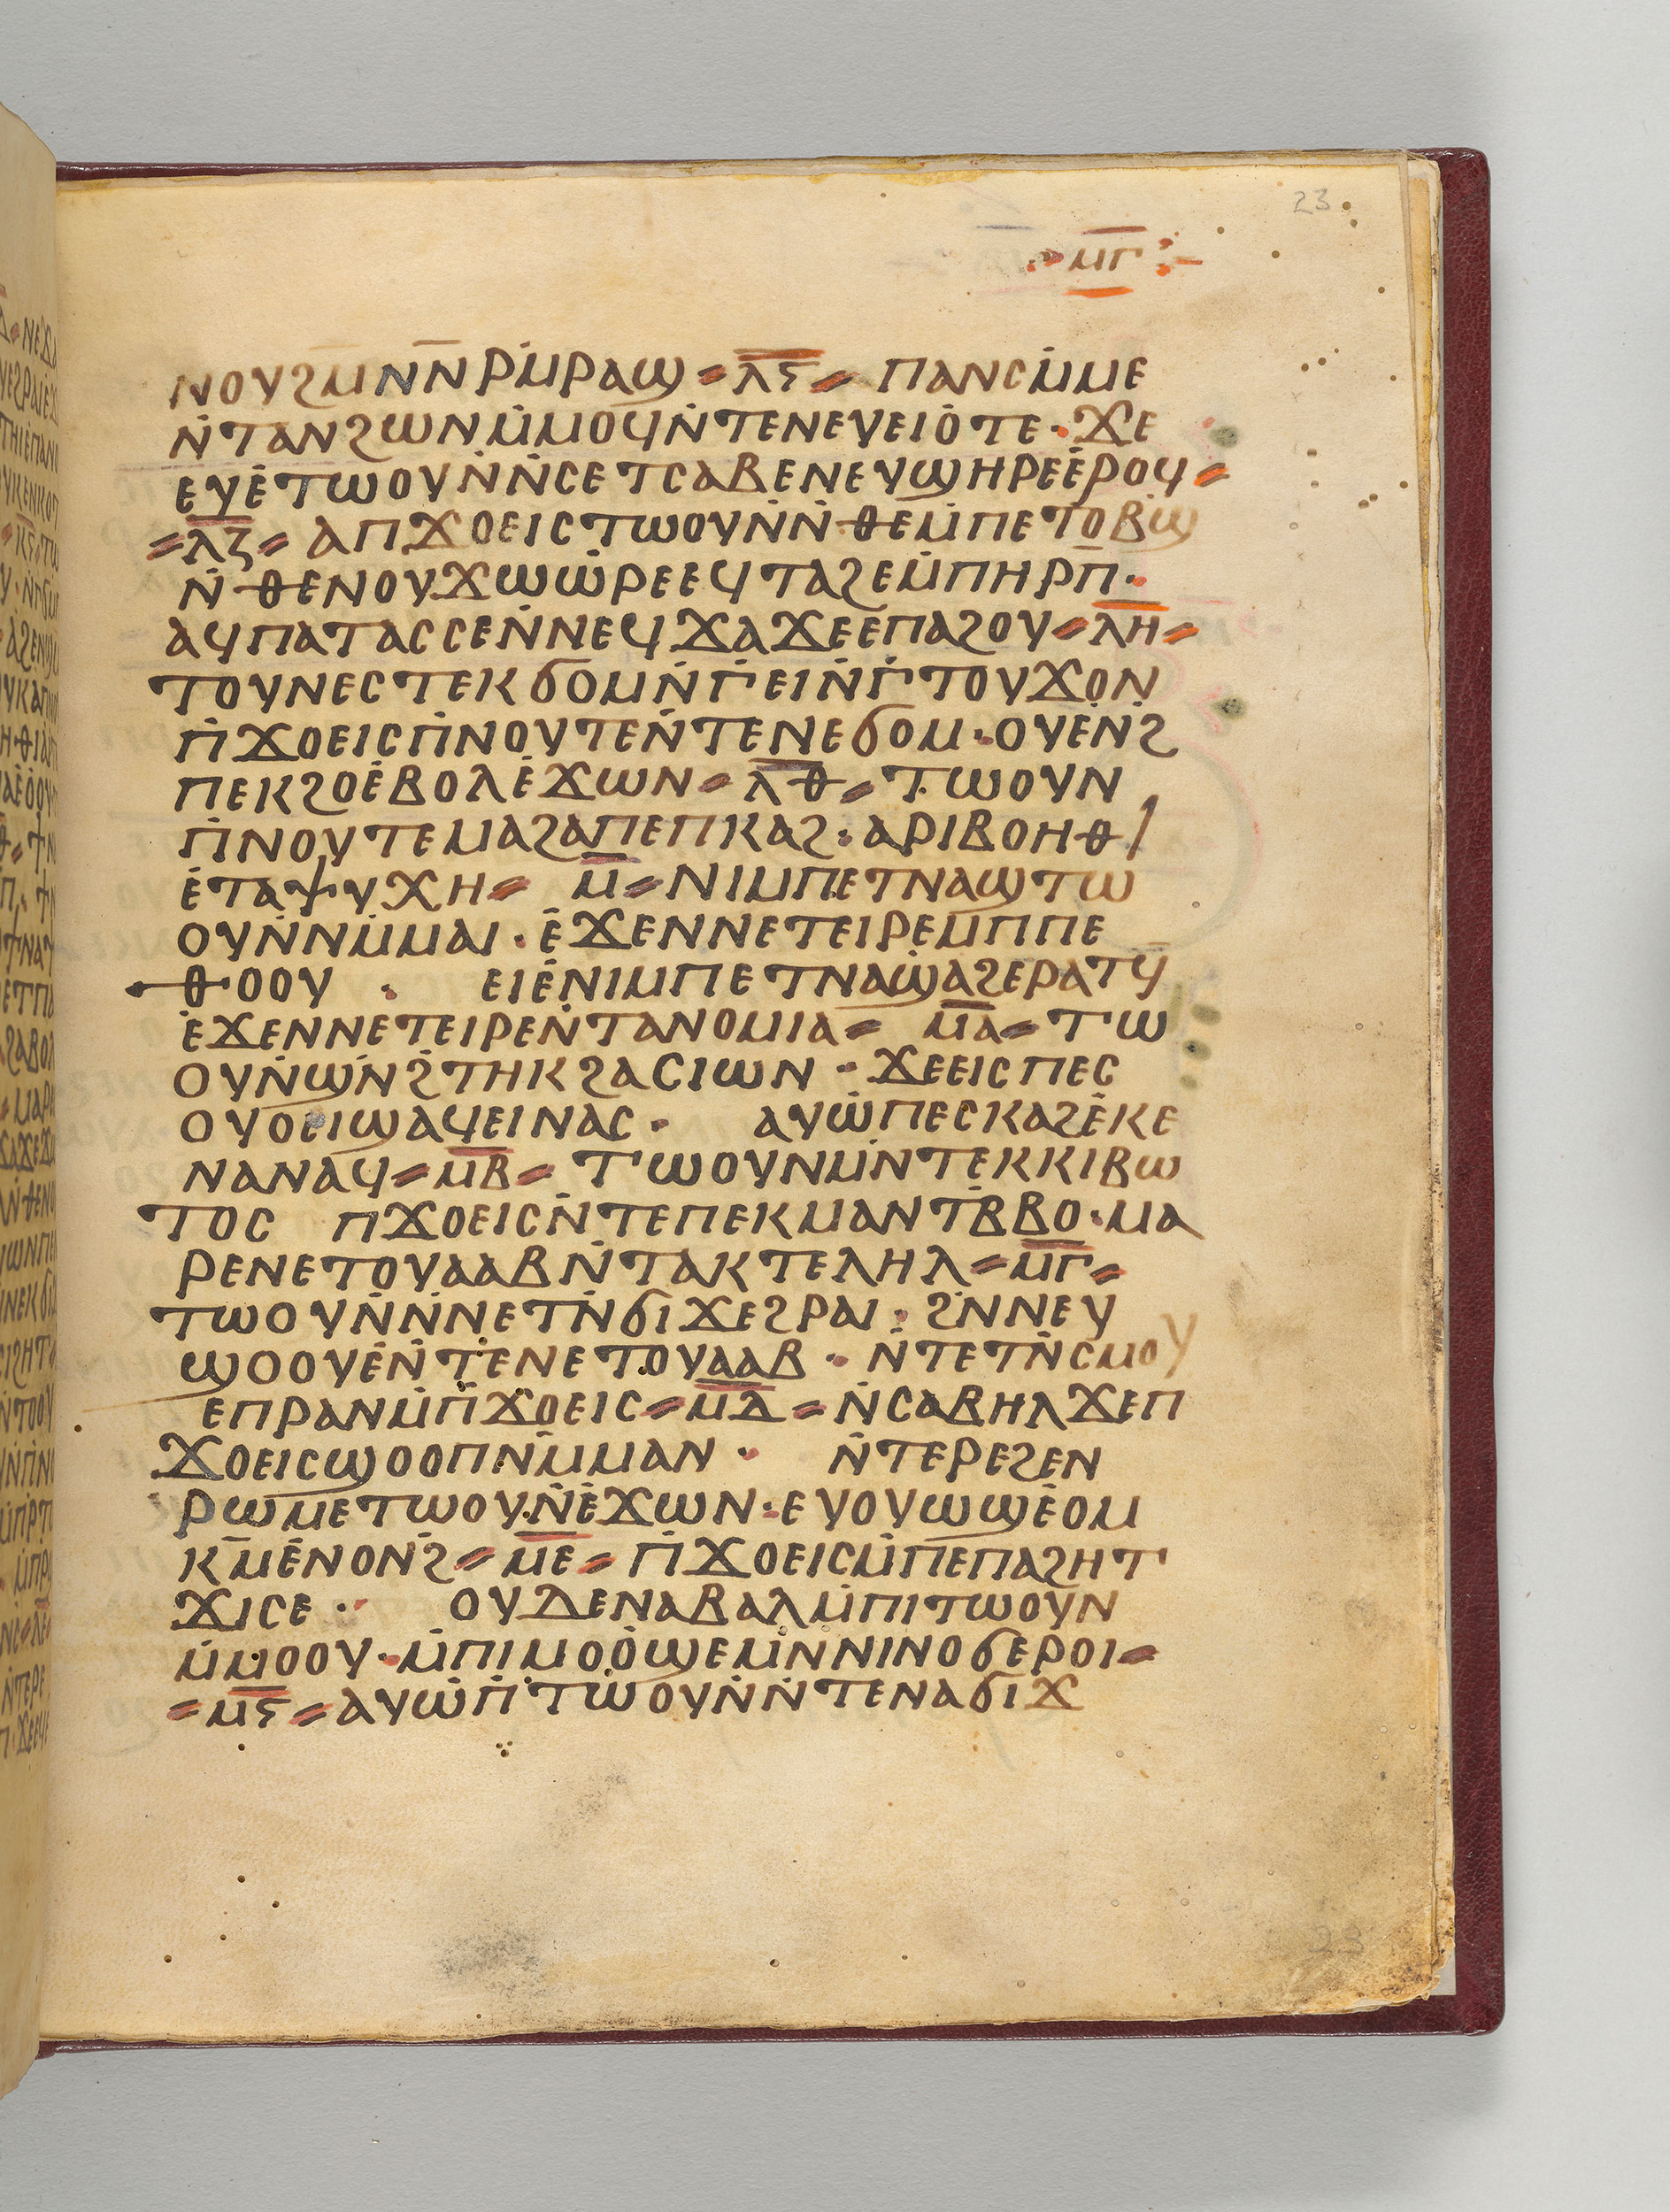 23
ⲙ̅ⲅ̅
ⲛⲟⲩϩⲙⲛ̄ⲛ̄ⲣⲙ̇ⲣⲁϣ ⸗ ⲗ̅ⲋ̅ ⸗ ⲡⲁⲛⲥⲙ̇ⲙⲉ
ⲛ̇ⲧⲁⲛϩⲱⲛⲙ̇ⲙⲟϥⲛ̇ⲧⲉⲛⲉⲩⲉⲓⲟ̇ⲧⲉ · ϫⲉ
ⲉⲩⲉ̇ⲧⲱⲟⲩⲛ̇ⲛ̇ⲥⲉⲧⲥⲁⲃⲉⲛⲉⲩϣⲏⲣⲉⲉ̇ⲣⲟϥ ⸗
⸗ ⲗ̅ⲍ̅ ⸗ ⲁⲡϫⲟⲉⲓⲥⲧⲱⲟⲩⲛ̇ⲛ̇ⲑⲉⲙ̇ⲡⲉⲧⲟⲃϣ̇
ⲛ̇ⲑⲉⲛⲟⲩϫⲱⲱ̇ⲣⲉⲉϥⲧⲁϩⲉⲙ̇ⲡⲏⲣⲡ̄ ·
ⲁϥⲡⲁⲧⲁⲥⲥⲉⲛ̇ⲛⲉϥϫⲁϫⲉⲉⲡⲁϩⲟⲩ ⸗ ⲗ̅ⲏ̅ ⸗
ⲧⲟⲩⲛⲉⲥⲧⲉⲕϭⲟⲙⲛ̇ⲅ̇ⲉⲓⲛ̇ⲅ̇ⲧⲟⲩϫⲟⲛ
ⲡ̇ϫⲟⲉⲓⲥⲡ̇ⲛⲟⲩⲧⲉⲛ̇ⲧⲉⲛⲉϭⲟⲙ · ⲟⲩⲉⲛ̇ϩ
ⲡⲉⲕϩⲟⲉ̇ⲃⲟⲗⲉ̇ϫⲱⲛ ⸗ ⲗ̅ⲑ̅ ⸗ ⲧⲱⲟⲩⲛ
ⲡ̇ⲛⲟⲩⲧⲉⲙⲁϩⲁⲡⲉⲡⲕⲁϩ · ⲁⲣⲓⲃⲟⲏⲑ/
ⲉ̇ⲧⲁⲯⲩⲭⲏ ⸗ ⲙ̅ ⸗ ⲛⲓⲙⲡⲉⲧⲛⲁϣⲧⲱ
ⲟⲩⲛ̇ⲛⲙ̇ⲙⲁⲓ · ⲉ̇ϫⲉⲛⲛⲉⲧⲉⲓⲣⲉⲙ̄ⲡⲡⲉ
ⲑⲟⲟⲩ · ⲉⲓⲉ̇ⲛⲓⲙⲡⲉⲧⲛⲁϣ̇ⲁϩⲉⲣⲁⲧϥ̄
ⲉ̇ϫⲉⲛⲛⲉⲧⲉⲓⲣⲉⲛ̇ⲧⲁⲛⲟⲙⲓⲁ ⸗ ⲙ̅ⲁ̅ ⸗ ⲧⲱ
ⲟⲩⲛ̇ⲱⲛ̇ϩ̇ⲧⲏⲕϩⲁⲥⲓⲱⲛ · ϫⲉⲉⲓⲥⲡⲉⲥ
ⲟⲩⲟⲉⲓϣⲁϥⲉⲓⲛⲁⲥ · ⲁⲩⲱ̇ⲡⲉⲥⲕⲁϩⲉ̇ⲕⲉ
ⲛⲁⲛⲁϥ ⸗ ⲙ̅ⲃ̅ ⸗ ⲧⲱⲟⲩⲛⲙⲛ̇ⲧⲉⲕⲕⲓⲃⲱ
ⲧⲟⲥ ⲡϫⲟⲉⲓⲥⲛ̇ⲧⲉⲡⲉⲕⲙⲁⲛⲧⲃ̄ⲃⲟ · ⲙⲁ
ⲣⲉⲛⲉⲧⲟⲩⲁⲁⲃⲛ̇ⲧⲁⲕⲧⲉⲗⲏⲗ ⸗ ⲙ̅ⲅ̅ ⸗
ⲧⲱⲟⲩⲛ̇ⲛ̇ⲛⲉⲧⲛ̄ϭⲓϫⲉϩⲣⲁⲓ · ϩⲛ̇ⲛⲉⲩ
ϣⲟⲟⲩⲉ̇ⲛ̇ⲧⲉⲛⲉⲧⲟⲩⲁⲁⲃ · ⲛ̇ⲧⲉⲧⲛ̇ⲥⲙⲟⲩ
ⲉⲡⲣⲁⲛⲙ̇ⲡ̇ϫⲟⲉⲓⲥ ⸗ ⲙ̅ⲇ̅ ⸗ ⲛ̇ⲥⲁⲃⲏⲗϫⲉⲡ
ϫⲟⲉⲓⲥϣⲟⲟⲡⲛⲙ̄ⲙⲁⲛ · ⲛ̇ⲧⲉⲣⲉϩⲉⲛ
ⲣⲱⲙⲉⲧⲱⲟⲩⲛ̇ⲉ̇ϫⲱⲛ · ⲉⲩⲟⲩⲱϣⲉ̇ⲟⲙ
ⲕⲙ̄ⲉ̇ⲛⲟⲛϩ̇ ⸗ ⲙ̅ⲉ̅ ⸗ ⲡ̇ϫⲟⲉⲓⲥⲙ̇ⲡⲉⲡⲁϩⲏⲧ
ϫⲓⲥⲉ · ⲟⲩⲇⲉⲛⲁⲃⲁⲗⲙ̇ⲡⲓⲧⲱⲟⲩⲛ
ⲙ̇ⲙⲟⲟⲩ · ⲙ̇ⲡⲓⲙⲟⲟ̇ϣⲉⲙⲛ̇ⲛⲓⲛⲟϭⲉⲣⲟⲓ ⸗
⸗ ⲙ̅ⲋ̅ ⸗ ⲁⲩⲱ̇ⲡ̇ⲧⲱⲟⲩⲛ̇ⲛ̇ⲧⲉⲛⲁϭⲓϫ